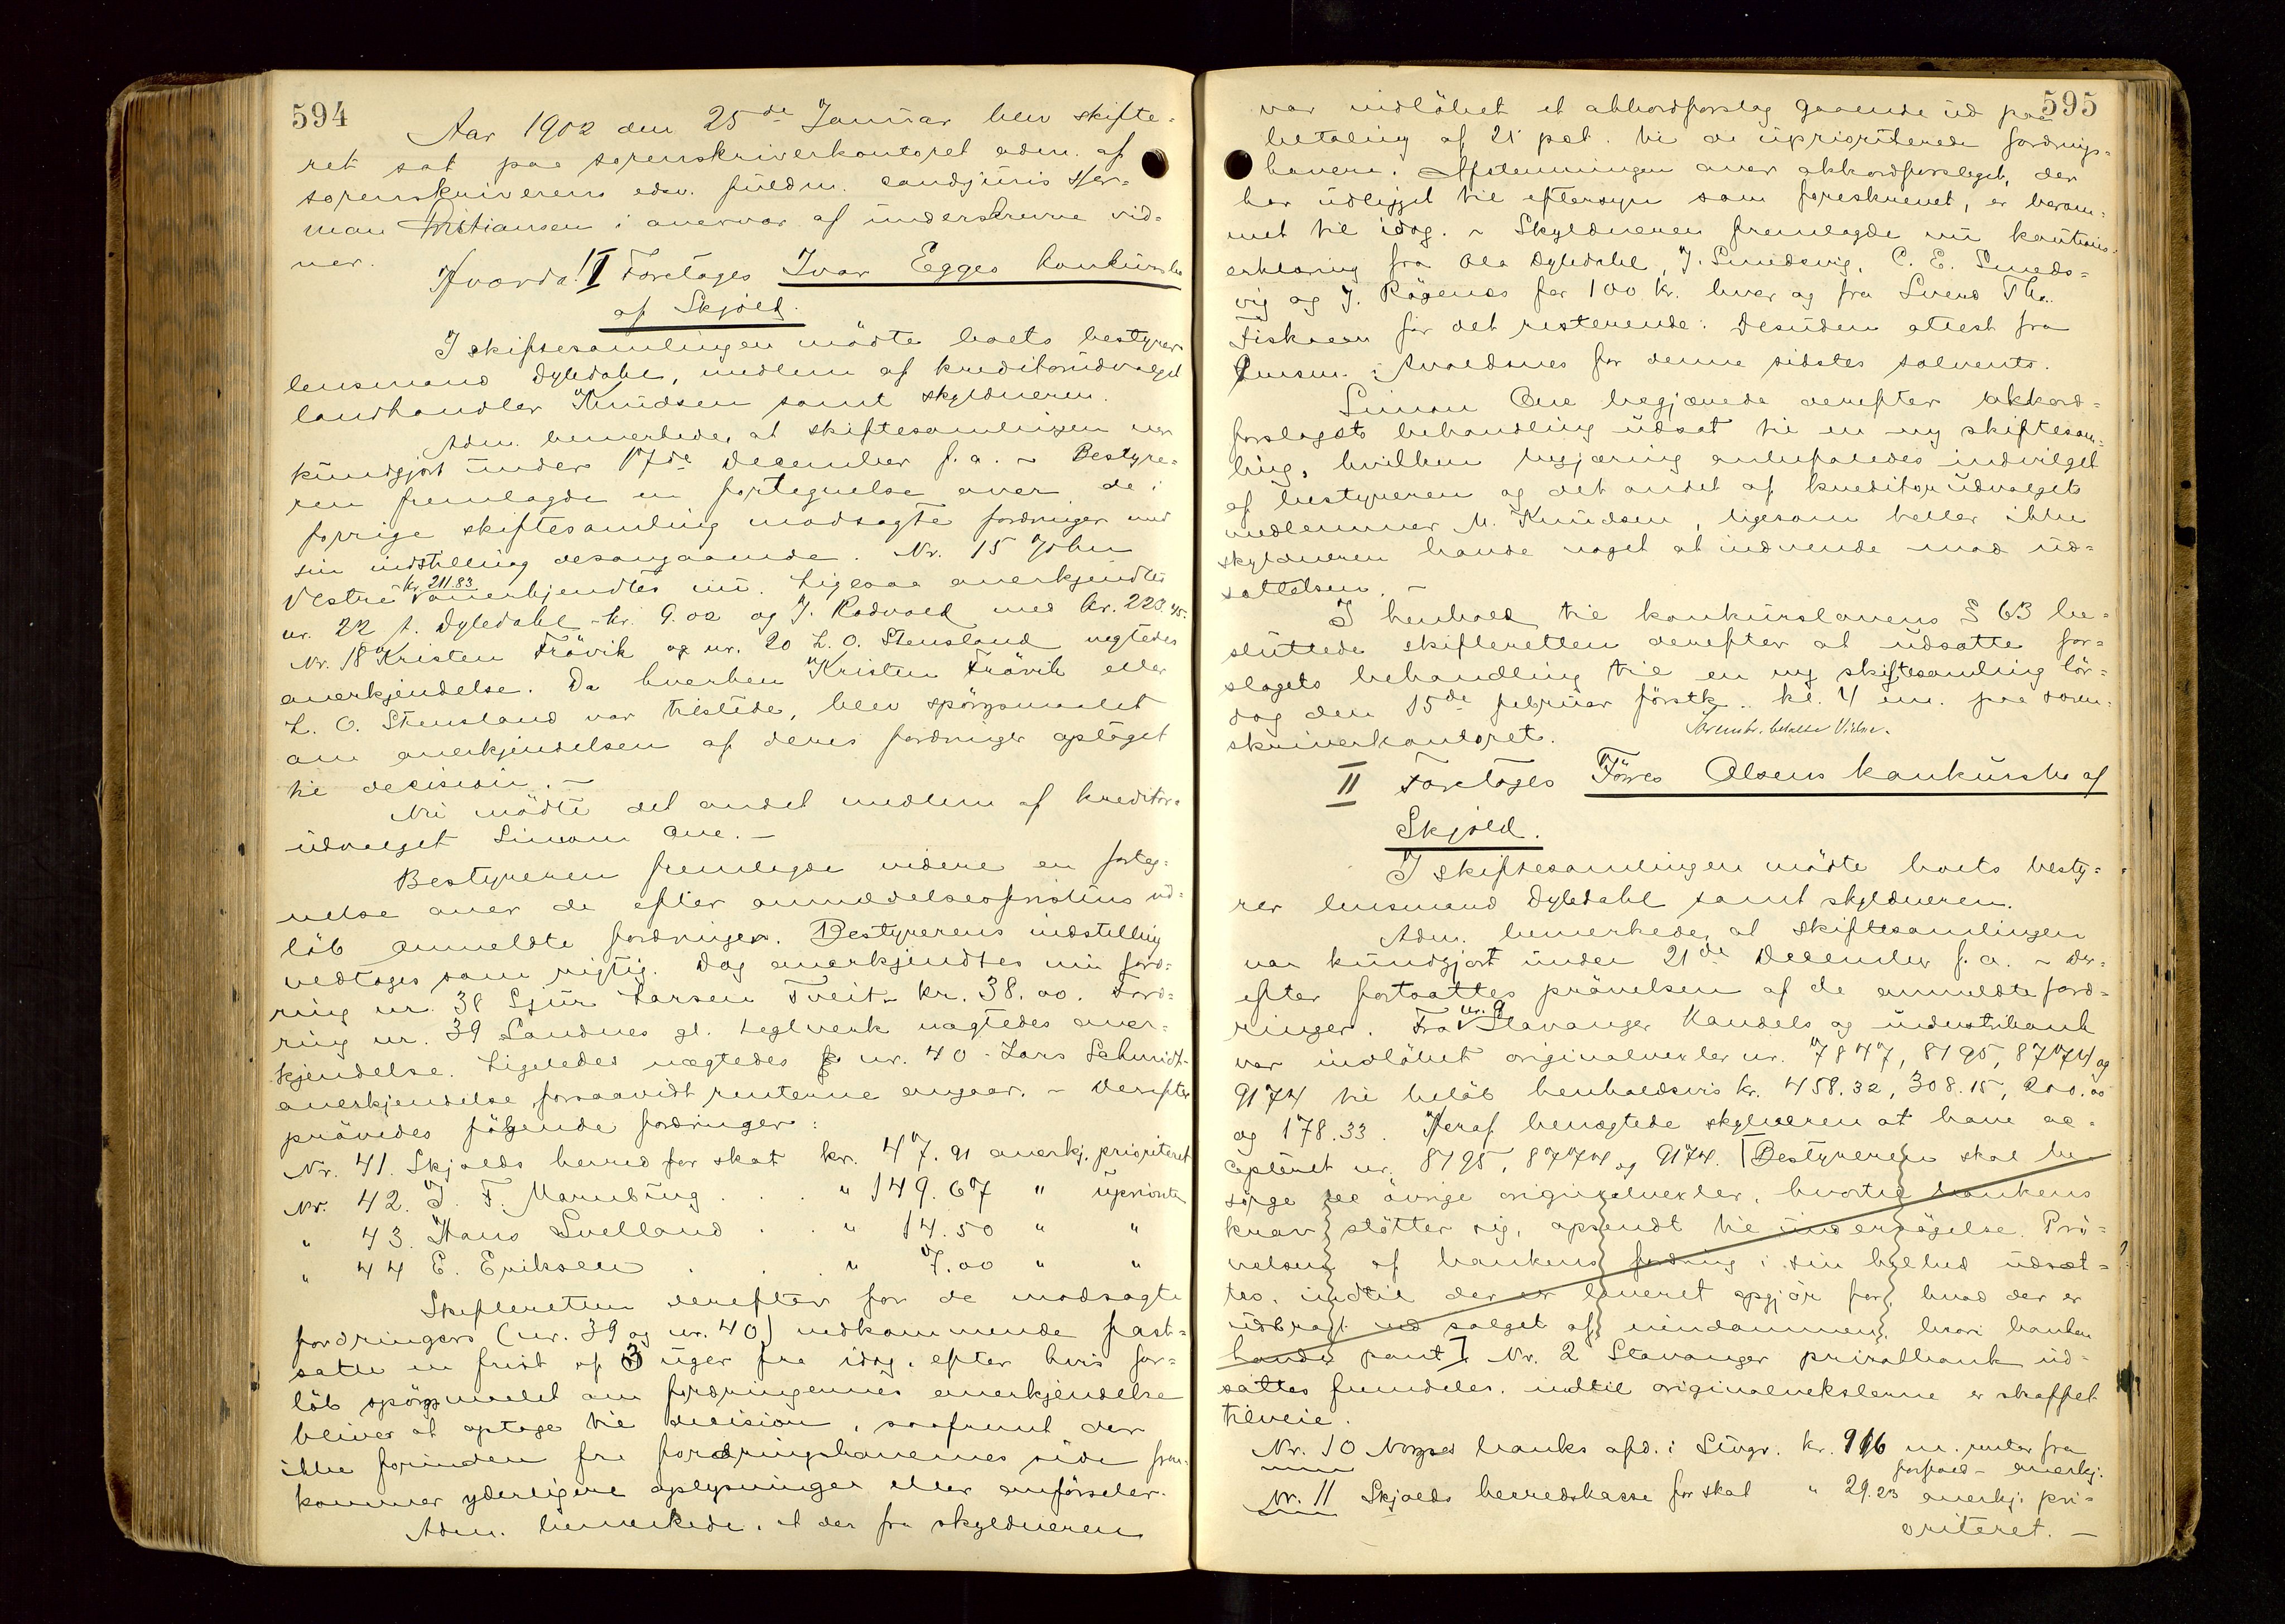 594
Aar 1902 den 25de Januar blev skifte-
ret sat paa sorenskriverkontoret adm. af
sorenskriverens edsv. fuldm. cand juris Her-
man Kristiansen i overvær af underskrevne vid-
ner.
Hvorda! I Foretoges Ivar Egges konkursbo
af Skjold.
I skiftesamlingen mødte boets bestyrer
lensmand Dyledahl, medlem af kreditorudvalget
landhandler Knudsen samt skyldneren.
Adm. bemerkede, at skiftesamlingen var
kundgjort under 17de December f. a. - Bestyre-
ren fremlagde en fortegnelse over de i
forrige skiftesamling modsagte fordringer med
sin indstilling desangaaende. Nr. 15 John
Vestre kr. 211.83 anerkjendtes nu. Ligesaa anerkjendtes
nr. 22 A. Dyledahl kr. 9.02 og J. Rødvold med kr. 223.45.
Nr. 18 Kristen Frövik og nr. 20 L. O. Stensland negtedes
anerkjendelse. Da hverken Kristen Frövik eller
L. O. Stensland var tilstede, blev spörgsmaalet
om anerkjendelsen af deres fordringer optaget
til decision. -
Nu mödte det andet medlem af kreditor-
udvalget Simon Ane. -
Bestyreren fremlagde videre en forteg-
nelse over de efter anmeldelsesfristens ud-
löb anmeldte fordringer. Bestyrerens indstilling
vedtoges som rigtig. Dog anerkjendtes nu ford-
ring nr. 38 Sjur Larsen Tveit kr. 38.00. Ford-
ring nr. 39 Sandnes gl. teglverk nægtedes aner-
kjendelse. Ligeledes nægtedes nr. 40 - Lars Schmidt
anerkjendelse forsaavidt renterne angaar. - Derefter
prövedes fölgende fordringer:
Nr. 41. Skjolds herred for skat kr. 47.91 anerkj. prioriteret
Nr. 42. J. F. Marnburg . . . " 149.67 " uprioritr
" 43. Hans Svelland . . " 14.50 " "
" 44 E. Eriksen . . . " 7.00 " "
Skifteretten derefter for de modsagte
fordringers (nr. 39 og nr. 40) vedkommende fast-
satte en frist af 3 uger fra idag, efter hvis for-
löb spörgsmaalet om fordringernes anerkjendelse
bliver at optage til decision, saafremt der
ikke forinden fra fordringshavernes side frem-
kommer yderligere oplysninger eller anförsler.
Adm. bemerkede, at der fra skyldneren
595
var indlöbet et akkordforslag gaaende ud paa
betaling af 25 pct. til de uprioriterede fordrings-
havere. Afstemningen over akkordforslaget, der
har udligget til eftersyn som foreskrevet, er beram-
met til idag. - Skyldneren fremlagde nu kautions-
erklæring fra Ola Dyledahl, J. Smedsvig, C. E. Smeds-
vig og J. Rögenes for 100 kr. hver og fra Svend Tho.
Fiskaaen for det resterende. Desuden attest fra
lensm. i Avaldsnes for denne sidstes solvents.
Simon Ane begjærede derefter akkord-
forslagets behandling udsat til en ny skiftesam-
ling, hvilken begjæring anbefaledes indvilget
af bestyreren og det andet af kreditorudvalgets
medlemmer M. Knudsen, ligesom heller ikke
skyldneren havde noget at indvende mod ud-
sættelsen. -
I henhold til konkurslovens § 63 be-
sluttede skifteretten derefter at udsætte for-
slagets behandling til en ny skiftesamling lör-
dag den 15de februar förstk. kl. 4 em. paa soren-
skriverkontoret.
Sorenskr. betalte Vidne.
II Foretoges Förres Olsens konkursbo af
Skjold.
I skiftesamlingen mödte boets besty-
rer lensmand Dyledahl samt skyldneren.
Adm. bemerkede, at skiftesamlingen
var kundgjort under 21de December f. a. - Der-
efter fortsattes prövelsen af de anmeldte ford-
ringer. Fra nr. 9 Stavanger Handels og industribank
var indlöbet originalvexler nr. 7847, 8195, 8774 og
9174 til belöb henholdsvis kr. 458.32, 308.15, 200.00
og 178.33. Heraf benægtede skyldneren at have ac-
cepteret nr. 8195, 8774 og 9174. [Bestyreren skal be-
sörge de övrige originalvexler, hvortil bankens
krav stötter sig, opsendt til undersögelse. Prö-
velsen af bankens fordring i sin helhed udsæt-
tes, indtil der er leveret opgjör for, hvad der er
udbragt ved salget af eiendommen, hvori banken
havde pant]. Nr. 2 Stavanger privatbank ud-
sattes fremdeles, indtil originalvekslerne er skaffet
tilveie.
Nr. 10 Norges banks afd. i Stvgr. kr. 916 m. renter fra
forfald - anerkj.
Nr. 11 Skjolds herredskasse for skat " 29.23 anerkj. pri-
oriteret. -